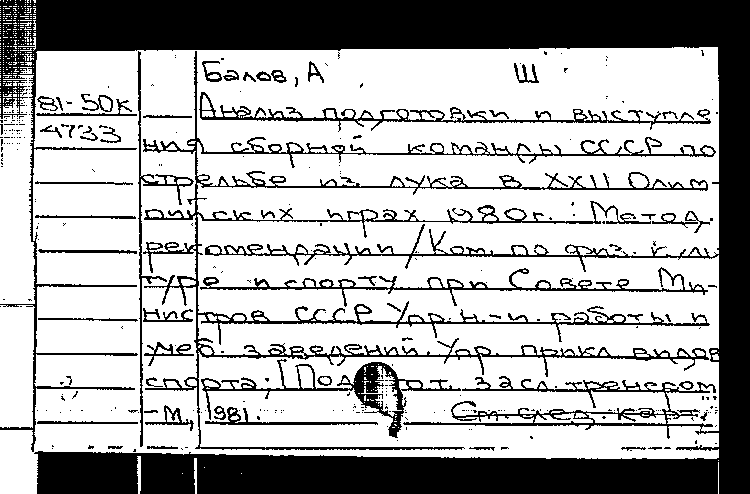 Балов, А Ш
81-50к
4733
Анализ подготовки и выступле-
ния сборной команды СССР по
стрельбе из лука в XXII Олим-
пийских играх 1980г.: Метод.
рекомендации / Ком. по физ. куль
туре и спорту при Совете Ми-
нистров СССР Упр. н.-и. работы и
учеб. заведений. Упр. прикл. видов
спорта; [Под засл. тренером
— М., 1981. См. след. карт.